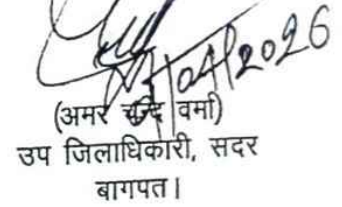 04/2026
(अमर चन्द्र वर्मा)
उप जिलाधिकारी, सदर
बागपत।